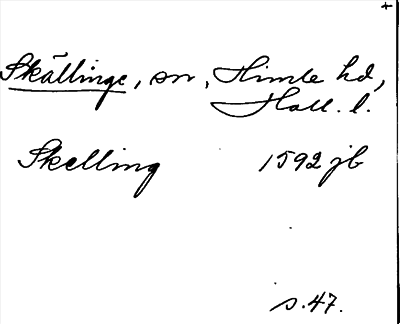 Skällinge, sn, Himle hd,
Hall. l.
Skelling 1592 jb
s. 47.